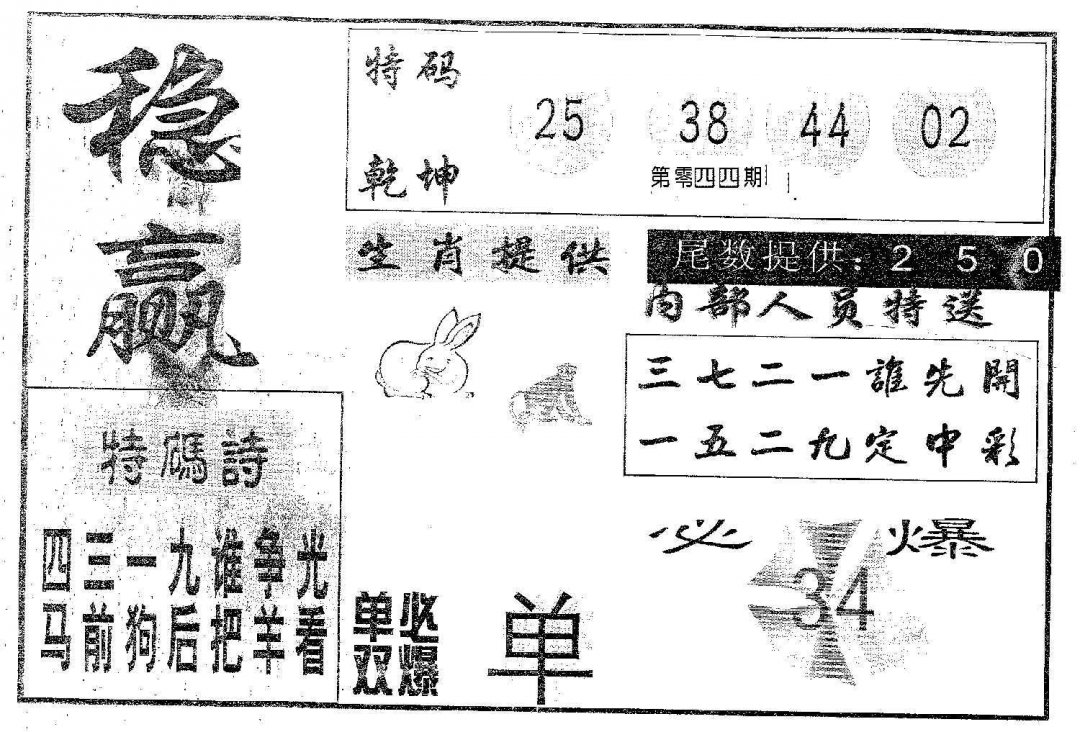 稳
赢
特码
乾坤
25 38 44 02
第零四四期
生肖提供
尾数提供:2 5 0
内部人员特送
三七二一誰先開
一五二九定中彩
特碼詩
四三一九谁争光
马前狗后把羊看
单必
双爆
单
必 爆
34